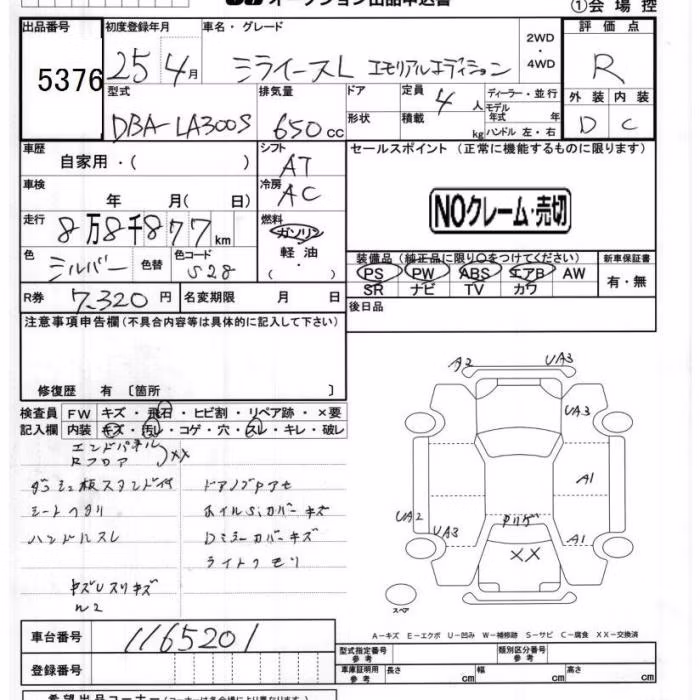 オークション出品申込書
①会場控
出品番号 初度登録年月 車名・グレード 2WD・4WD 評価点
5376 25年 4月 ミライースL エモリアルエディション R
型式 排気量 ドア 定員 4人 ディーラー・並行 外装 内装
DBA-LA300S 650cc 形状 積載 kg モデル年式 年 ハンドル 左・右 D C
車歴 シフト セールスポイント (正常に機能するものに限ります)
自家用・( ) AT
車検 年 月(日) 冷房 AC
NOクレーム・売切
走行 8万8千877km 燃料 ガソリン
軽油
・( )
色 シルバー 色替 色コード S28
装備品(純正品に限り○をつけてください) 新車保証書
PS PW ABS エアB AW 有・無
SR ナビ TV カワ
R券 7,320円 名変期限 月 日
後日品
注意事項申告欄(不具合内容等は具体的に記入して下さい)
修復歴 有 〔箇所 〕
検査員 FW キズ・飛石・ヒビ割・リペア跡・×要
記入欄 内装 キズ・汚レ・コゲ・穴・スレ・キレ・破レ
エンドパネル
Rフロア XX
ダッシュ板スタンド付 ドアノブアセ
シートヘタリ ホイルS,カバーキズ
ハンドルスレ Dミラーカバーキズ
ライトクモリ
キズUスリキズ
W2
A2 UA3
UA3
A1
UA2 UA3 A1
XX
スペア
A-キズ E-エクボ U-凹み W-補修跡 S-サビ C-腐食 XX-交換済
車台番号 1165201
型式指定番号 参考 類別区分番号 参考
登録番号
車庫証明用 参考 長さ cm 幅 cm 高さ cm
希望出品コーナー